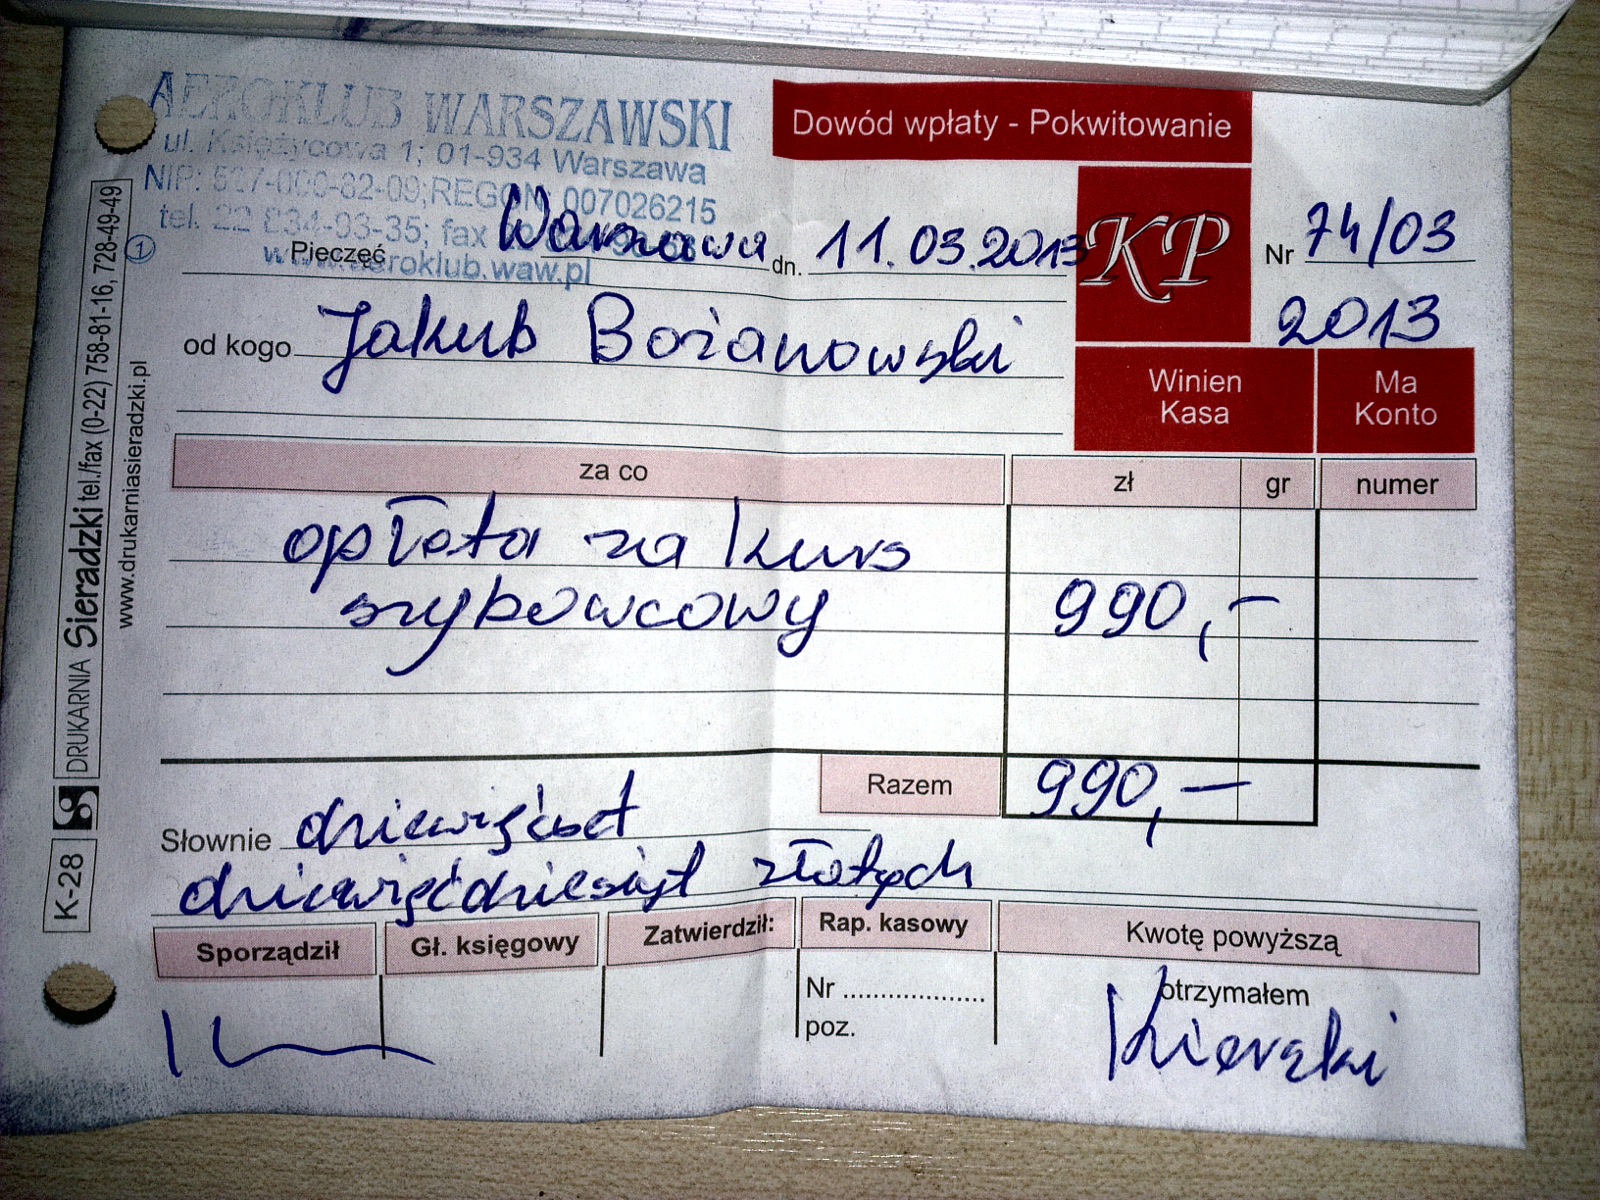 AEROKLUB WARSZAWSKI
ul. Księżycowa 1; 01-934 Warszawa
NIP: 527-000-82-09; REGON: 007026215
tel. 22 834-93-35; fax
www.aeroklub.waw.pl
Dowód wpłaty - Pokwitowanie
KP
Nr 74/03
2013
Pieczęć Warszawa dn. 11.03.2013
od kogo Jakub Bożanowski
Winien
Kasa
Ma
Konto
za co zł gr numer
opłata za kurs
szybowcowy 990,-
Razem 990,-
Słownie dziewięćset
dziewięćdziesiąt złotych
Sporządził Gł. księgowy Zatwierdził: Rap. kasowy Kwotę powyższą
Nr .................... otrzymałem
poz.
K-28 DRUKARNIA Sieradzki tel./fax (0-22) 758-81-16, 728-49-49
www.drukarniasieradzki.pl
1